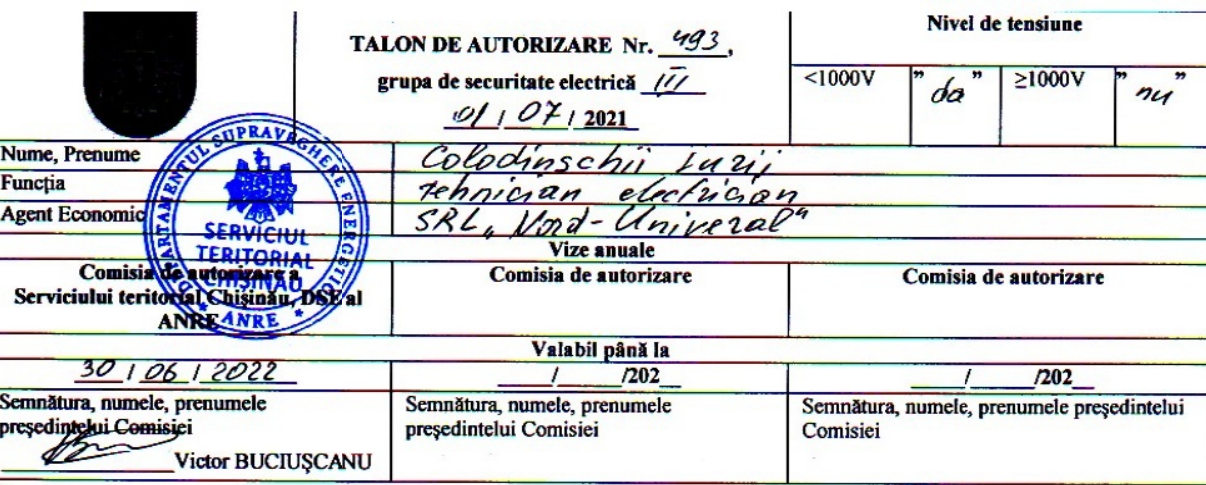 TALON DE AUTORIZARE Nr. 493,
grupa de securitate electrică III
01 / 07 / 2021
Nivel de tensiune
<1000V
" da "
≥1000V
" nu "
Nume, Prenume
Colodinschii Iurii
Funcția
tehnician electrician
Agent Economic
SRL „Nord-Univeral"
DEPARTAMENTUL SUPRAVEGHERE ENERGETICĂ
SERVICIUL
TERITORIAL
CHIȘINĂU
* ANRE *
Vize anuale
Comisia de autorizare a
Serviciului teritorial Chișinău, DSE al
ANRE
Comisia de autorizare
Comisia de autorizare
Valabil până la
30 / 06 / 2022
____/_____/202__
____/_____/202__
Semnătura, numele, prenumele
președintelui Comisiei
Victor BUCIUȘCANU
Semnătura, numele, prenumele
președintelui Comisiei
Semnătura, numele, prenumele președintelui
Comisiei